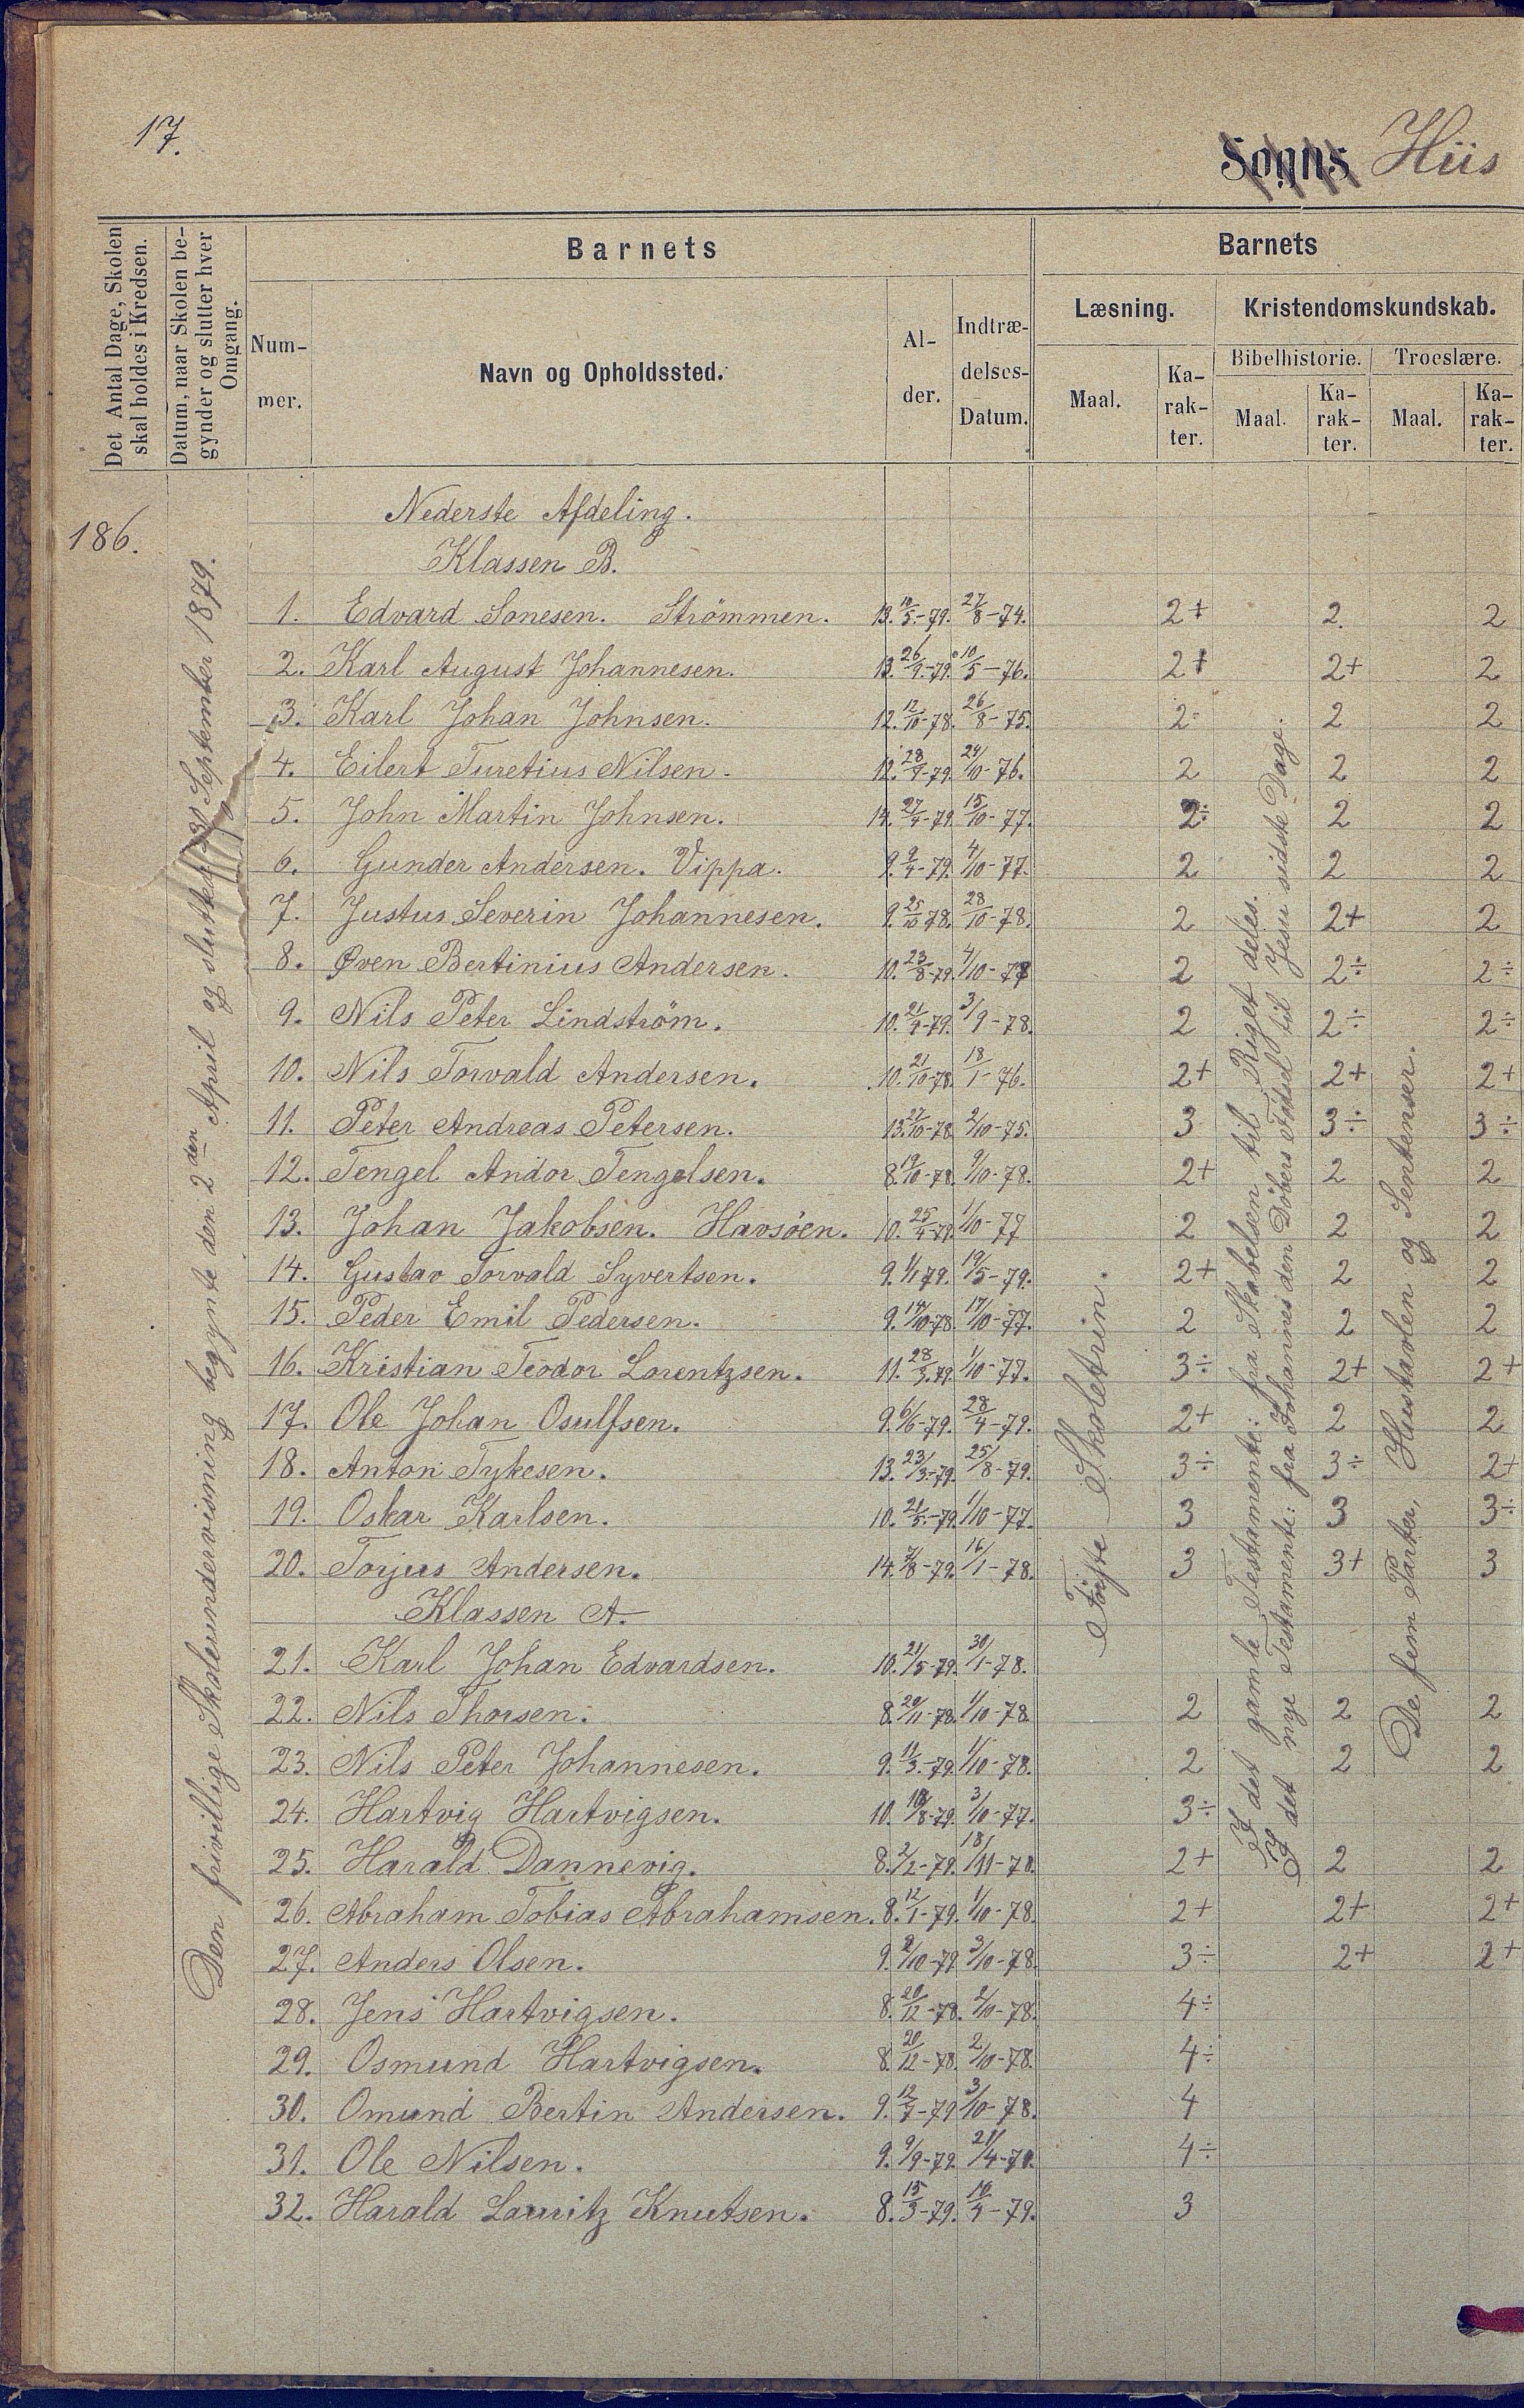 17.
Sogns Hiis
Det Antal Dage, Skolen
skal holdes i Kredsen.
Datum, naar Skolen be-
gynder og slutter hver
Omgang.
Barnets
Num-
mer.
Navn og Opholdssted.
Al-
der.
Indtræ-
delses-
Datum.
Barnets
Læsning.
Kristendomskundskab.
Bibelhistorie.
Troeslære.
Maal.
Ka-
rak-
ter.
Maal.
Ka-
rak-
ter.
Maal.
Ka-
rak-
ter.
186.
Den frivillige Skoleundervisning begynte den 2den April og sluttet September 1879.
Første Skoletrin.
I det gamle Testamente: fra Skabelsen til Riget deles.
I det nye Testamente: fra Johannes den Döbers Födsel til Jesu sidste Dage.
De fem Parter, Hustavlen og Sentenser.
Nederste Afdeling.
Klassen B.
1. Edvard Sonesen. Strömmen. 13. 10/5-79. 27/8-74. 2+ 2. 2
2. Karl August Johannesen. 13. 26/9-79. 10/5-76. 2+ 2+ 2
3. Karl Johan Johnsen. 12. 12/10-78. 26/8-75. 2 2 2
4. Eilert Turetius Nilsen. 12. 28/9-79. 24/10-76. 2 2 2
5. John Martin Johnsen. 14. 27/4-79. 15/10-77. 2÷ 2 2
6. Gunder Andersen. Vippa. 9. 9/4-79. 4/10-77. 2 2 2
7. Justus Severin Johannesen. 9. 25/10-78. 28/10-78. 2 2+ 2
8. Øven Bertinius Andersen. 10. 23/8-79. 4/10-77 2 2÷ 2÷
9. Nils Peter Lindström. 10. 21/4-79. 3/9-78. 2 2÷ 2÷
10. Nils Torvald Andersen. 10. 21/10-78. 18/1-76. 2+ 2+ 2+
11. Peter Andreas Petersen. 13. 27/10-78 2/10-75. 3 3÷ 3÷
12. Tengel Andor Tengelsen. 8. 19/10-78. 9/10-78. 2+ 2 2
13. Johan Jakobsen. Havsöen. 10. 25/4-79. 1/10-77 2 2 2
14. Gustav Torvald Syvertsen. 9. 1/1 79. 19/5-79. 2+ 2 2
15. Peder Emil Pedersen. 9. 14/10-78. 17/10-77. 2 2 2
16. Kristian Teodor Lorentzsen. 11. 28/3-79. 1/10-77. 3÷ 2+ 2+
17. Ole Johan Osulfsen. 9. 6/6-79. 28/4-79. 2+ 2 2
18. Anton Tykesen. 13. 23/3-79. 25/8-79. 3÷ 3÷ 2+
19. Oskar Karlsen. 10. 21/5-79. 1/10-77. 3 3 3÷
20. Torjus Andersen. 14. 7/8-79. 16/1-78. 3 3+ 3
Klassen A.
21. Karl Johan Edvardsen. 10. 21/5-79. 30/1-78.
22. Nils Thorsen. 8. 20/11-78. 1/10-78. 2 2 2
23. Nils Peter Johannesen. 9. 11/3-79. 1/10-78. 2 2 2
24. Hartvig Hartvigsen. 10. 10/8-79. 3/10-77. 3÷
25. Harald Dannevig. 8. 2/2-79. 18/11-78. 2+ 2 2
26. Abraham Tobias Abrahamsen. 8. 12/1-79. 1/10-78. 2+ 2+ 2+
27. Anders Olsen. 9. 2/10-79. 3/10-78. 3÷ 2+ 2+
28. Jens Hartvigsen. 8. 20/12-78. 2/10-78. 4÷
29. Osmund Hartvigsen. 8. 20/12-78. 2/10-78. 4÷
30. Omund Bertin Andersen. 9. 12/7-79 3/10-78. 4
31. Ole Nilsen. 9. 9/9-79. 21/4-79. 4÷
32. Harald Lauritz Knutsen. 8. 15/3-79. 16/4-79. 3